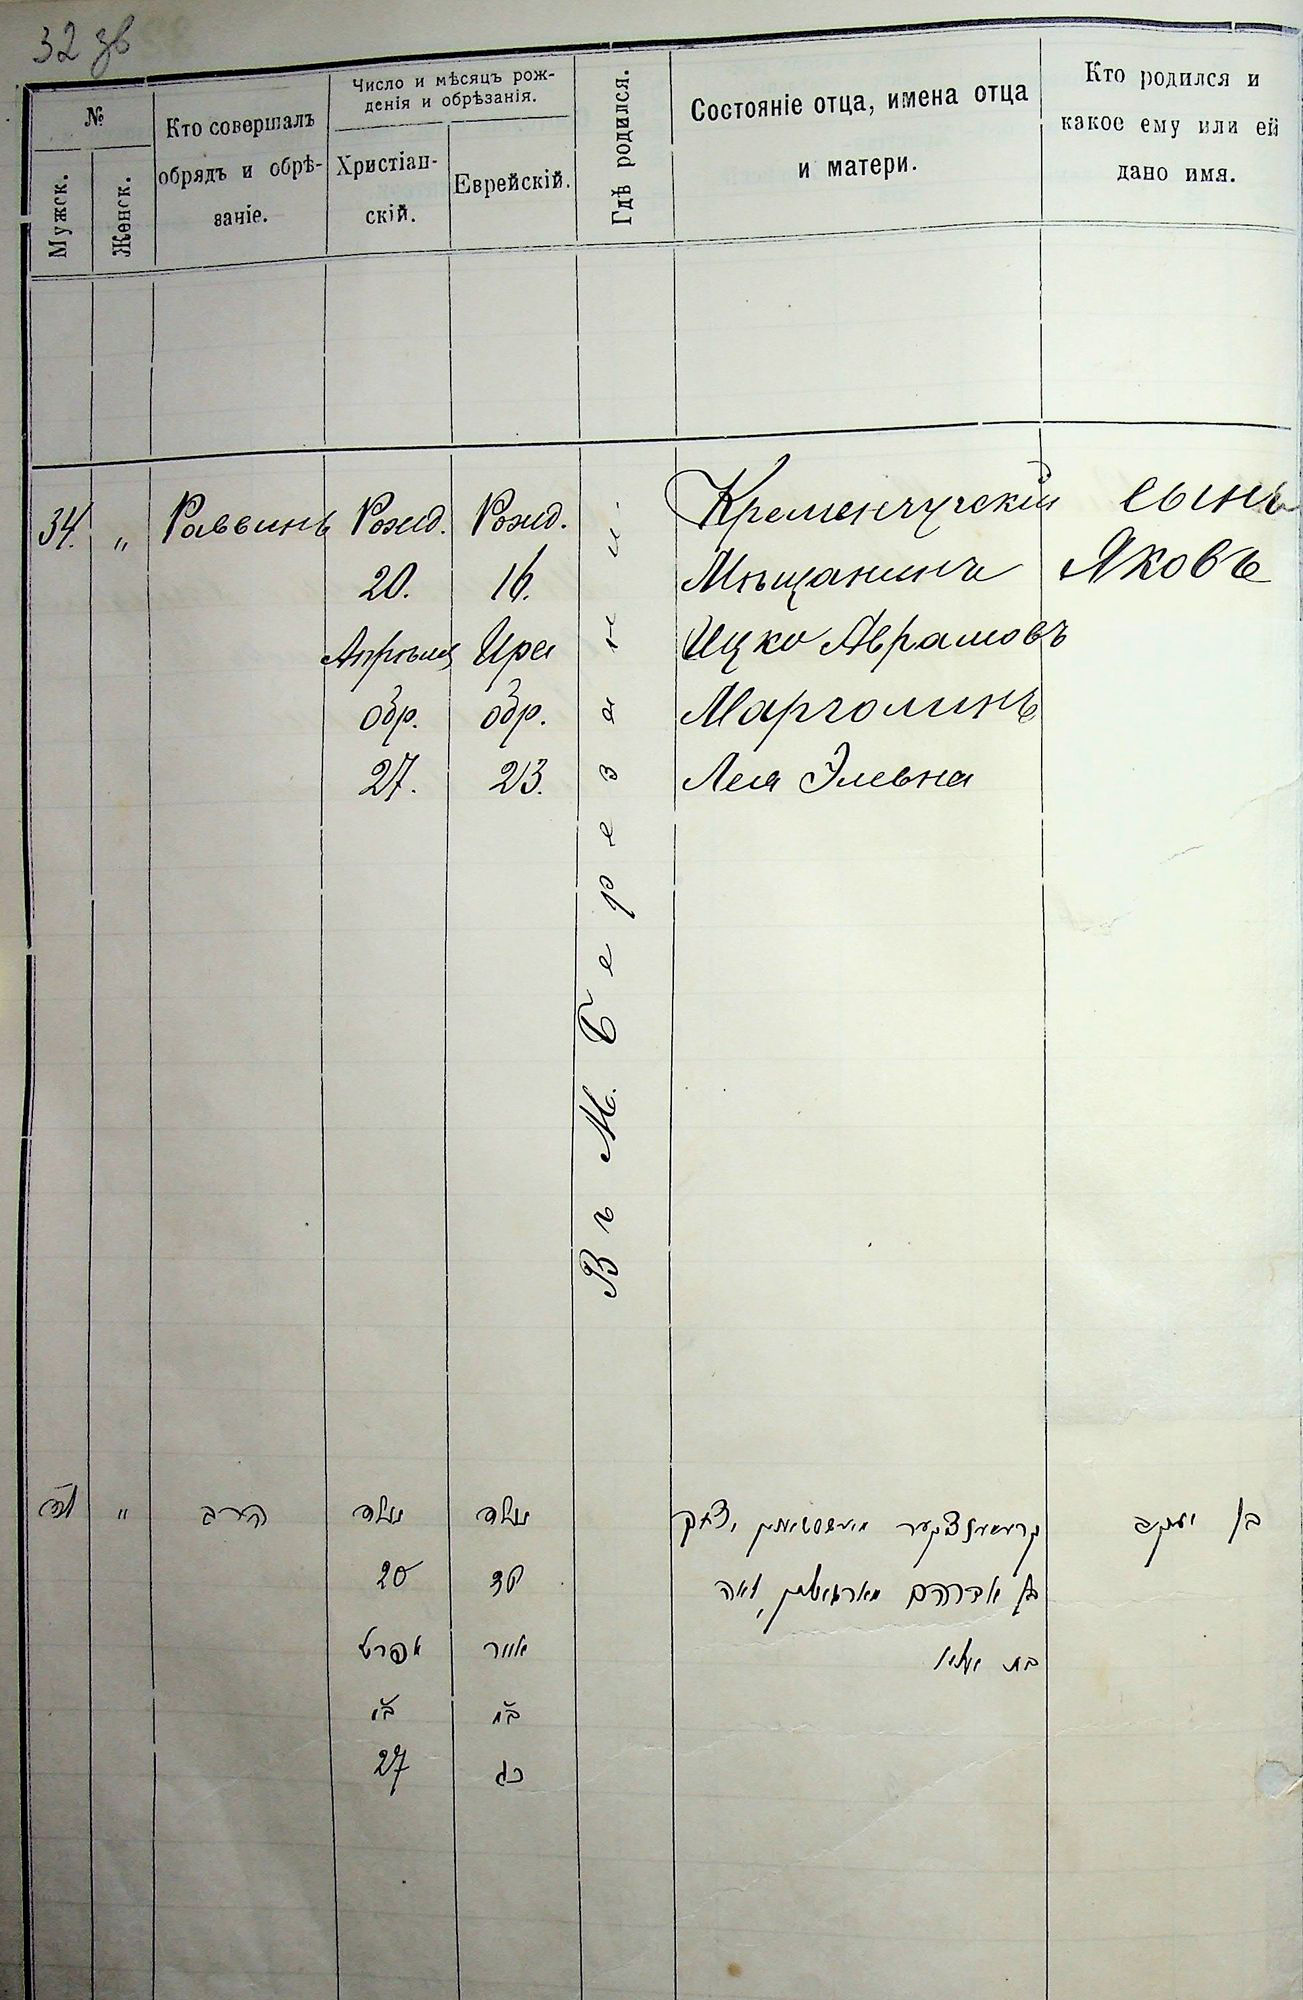 32 зв
№
Мужск.
Женск.
Кто совершалъ
обрядъ и обрѣ-
заніе.
Число и мѣсяцъ рож-
денія и обрѣзанія.
Христіан-
скій.
Еврейскій.
Гдѣ родился.
Состояніе отца, имена отца
и матери.
Кто родился и
какое ему или ей
дано имя.
34. " Раввинъ Рожд. Рожд. Кременчугскій сынъ
20. 16. Мѣщанинъ Яковъ
Апрѣля Ира Ицко Аврамовъ
обр. обр. Марголинъ
27. 23. Лея Элевна
Въ М. Березани
" הרב נולד נולד יצחק בן יעקב
20 טז בן אברהם מארגאלין לאה
אפריל אייר בת
27 כג